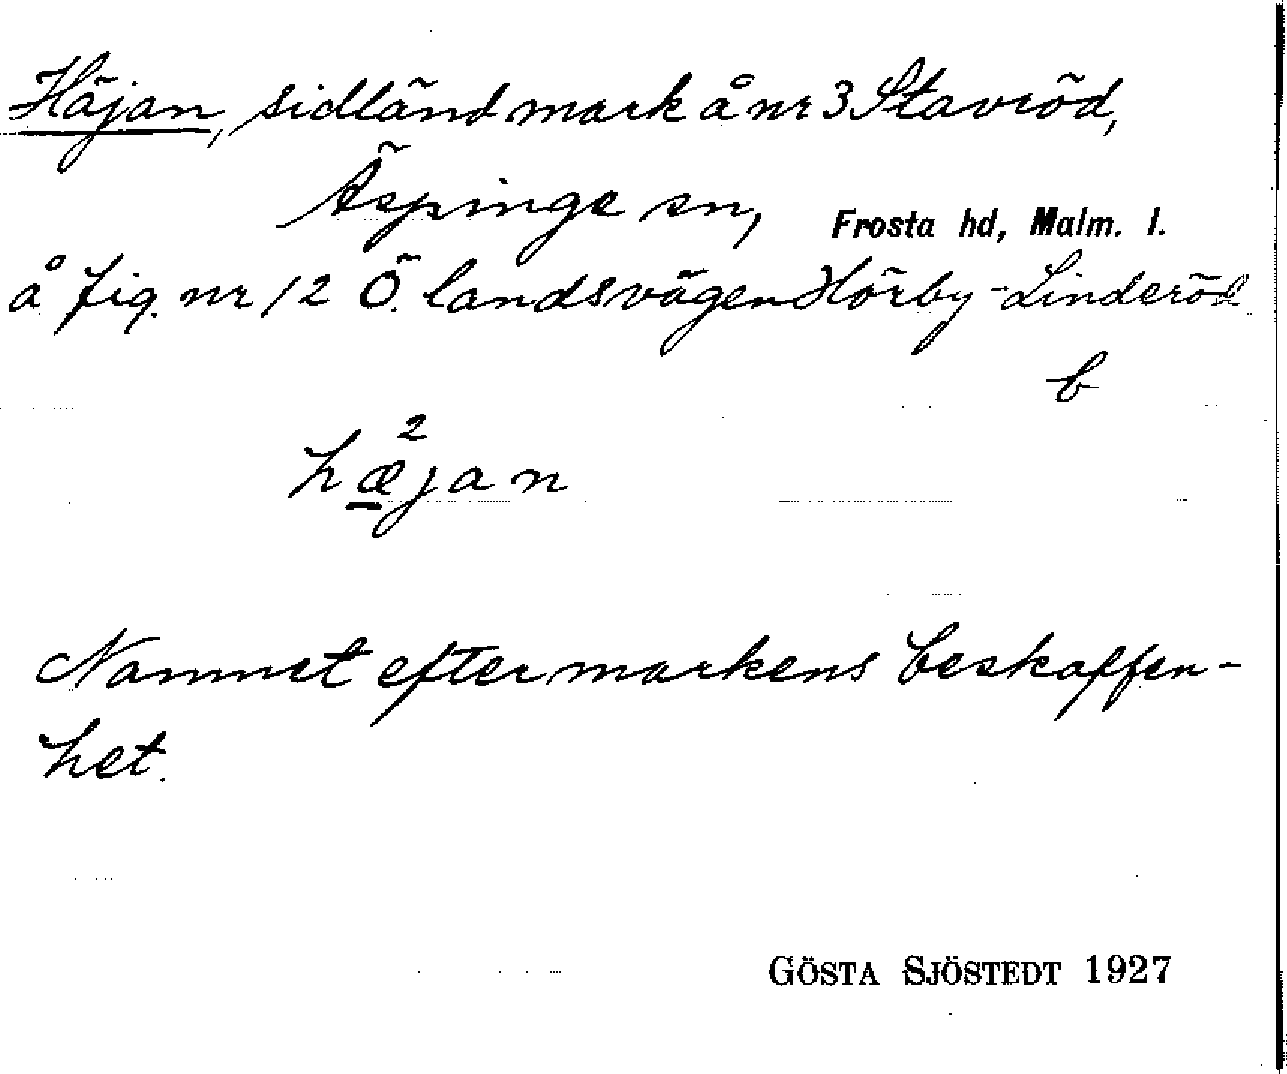 Häjan, sidländ mark å nr 3 Stavröd,
Äspinge sn, Frosta hd, Malm. l.
å fig. nr 12 Ö. landsvägen Hörby-Linderöd
b
2
hæjan
Namnet efter markens beskaffen-
het.
GÖSTA SJÖSTEDT 1927